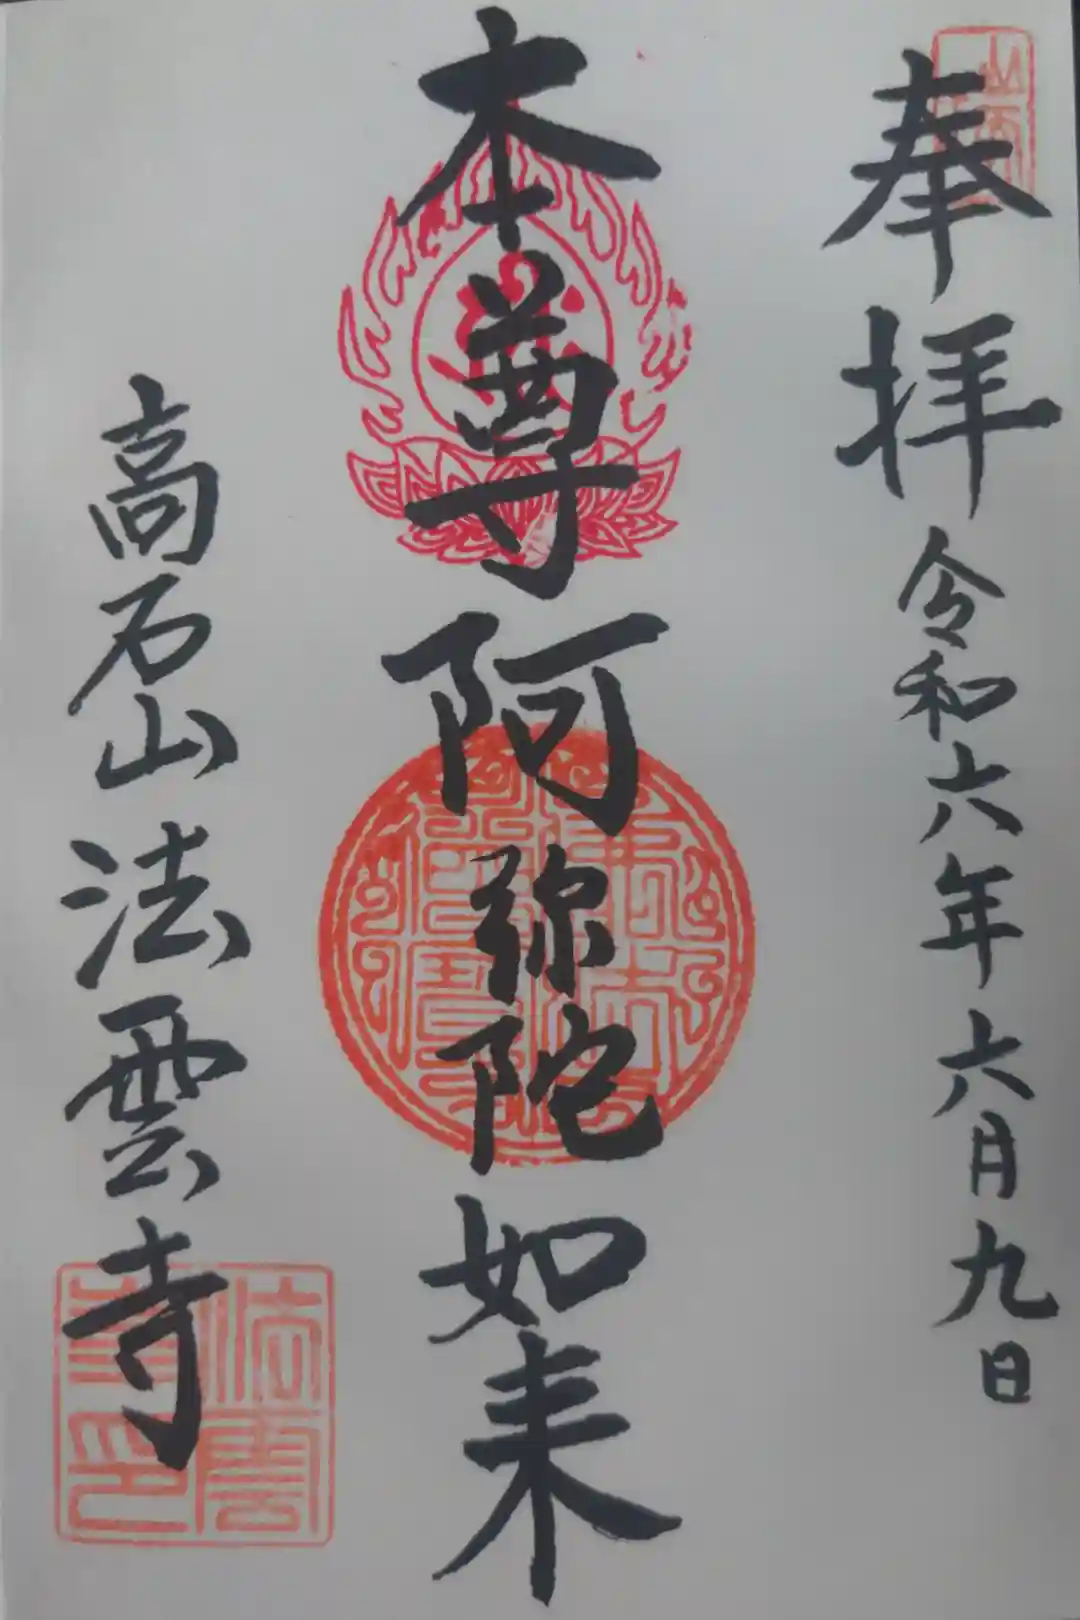 奉拝
令和六年六月九日
本尊阿弥陀如来
高石山法雲寺
法雲寺印